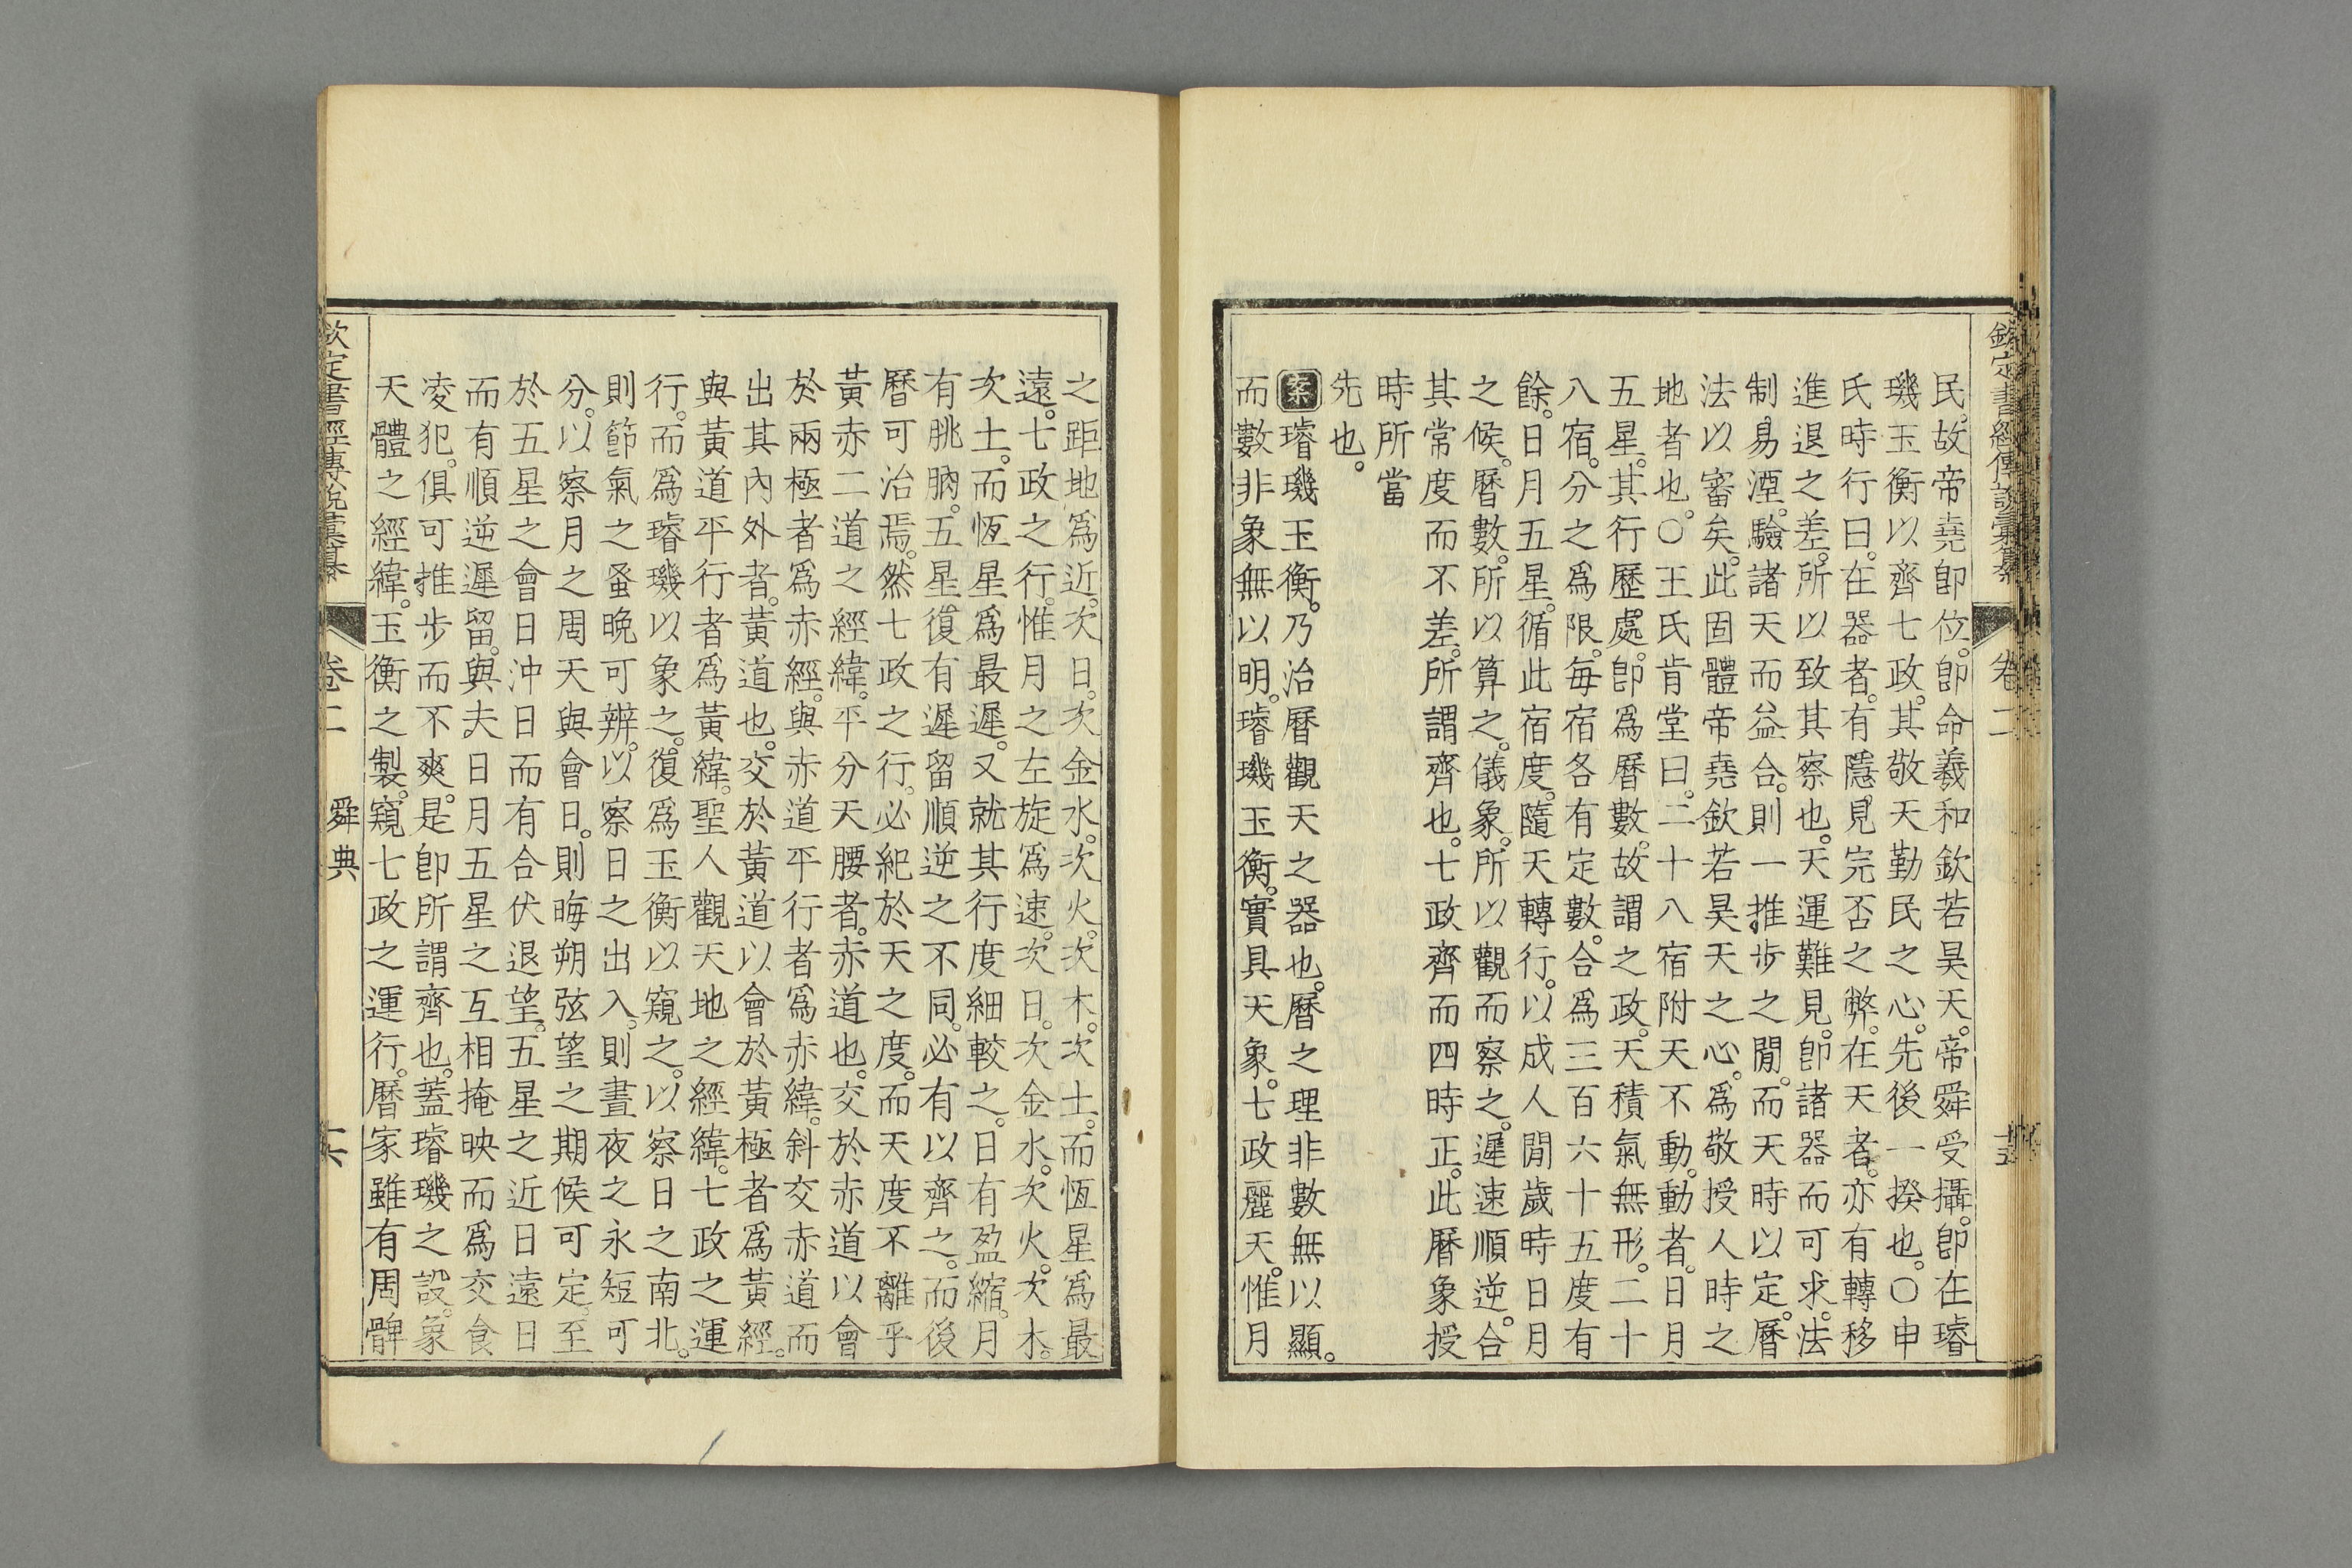 欽定書經傳說彙纂
卷二
十五
民。故帝堯卽位。卽命羲和欽若昊天。帝舜受攝。卽在璿
璣玉衡以齊七政。其敬天勤民之心。先後一揆也。〇申
氏時行曰。在器者。有隱見完否之弊。在天者。亦有轉移
進退之差。所以致其察也。天運難見。卽諸器而可求。法
制易湮。驗諸天而益合。則一推步之閒。而天時以定。曆
法以審矣。此固體帝堯欽若昊天之心。爲敬授人時之
地者也。〇王氏肯堂曰。二十八宿附天不動。動者。日月
五星。其行歷處。卽爲曆數。故謂之政。天積氣無形。二十
八宿。分之爲限。每宿各有定數。合爲三百六十五度有
餘。日月五星。循此宿度。隨天轉行。以成人閒歲時日月
之候。曆數。所以算之。儀象。所以觀而察之。遲速順逆。合
其常度而不差。所謂齊也。七政齊而四時正。此曆象授
時所當
先也。
案璿璣玉衡。乃治曆觀天之器也。曆之理非數無以顯。
而數非象無以明。璿璣玉衡。實具天象。七政麗天。惟月
之距地爲近。次日。次金水。次火。次木。次土。而恆星爲最
遠。七政之行。惟月之左旋爲速。次日。次金水。次火。次木。
次土。而恆星爲最遲。又就其行度細較之。日有盈縮。月
有朓朒。五星復有遲留順逆之不同。必有以齊之。而後
曆可治焉。然七政之行。必紀於天之度。而天度不離乎
黃赤二道之經緯。平分天腰者。赤道也。交於赤道以會
於兩極者爲赤經。與赤道平行者爲赤緯。斜交赤道而
出其內外者。黃道也。交於黃道以會於黃極者爲黃經。
與黃道平行者爲黃緯。聖人觀天地之經緯。七政之運
行。而爲璿璣以象之。復爲玉衡以窺之。以察日之南北。
則節氣之蚤晚可辨。以察日之出入。則晝夜之永短可
分。以察月之周天與會日。則晦朔弦望之期候可定。至
於五星之會日沖日而有合伏退望。五星之近日遠日
而有順逆遲留。與夫日月五星之互相掩映而爲交食
凌犯。俱可推步而不爽。是卽所謂齊也。蓋璿璣之設。象
天體之經緯。玉衡之製。窺七政之運行。曆家雖有周髀
欽定書經傳說彙纂
卷二
舜典
十六